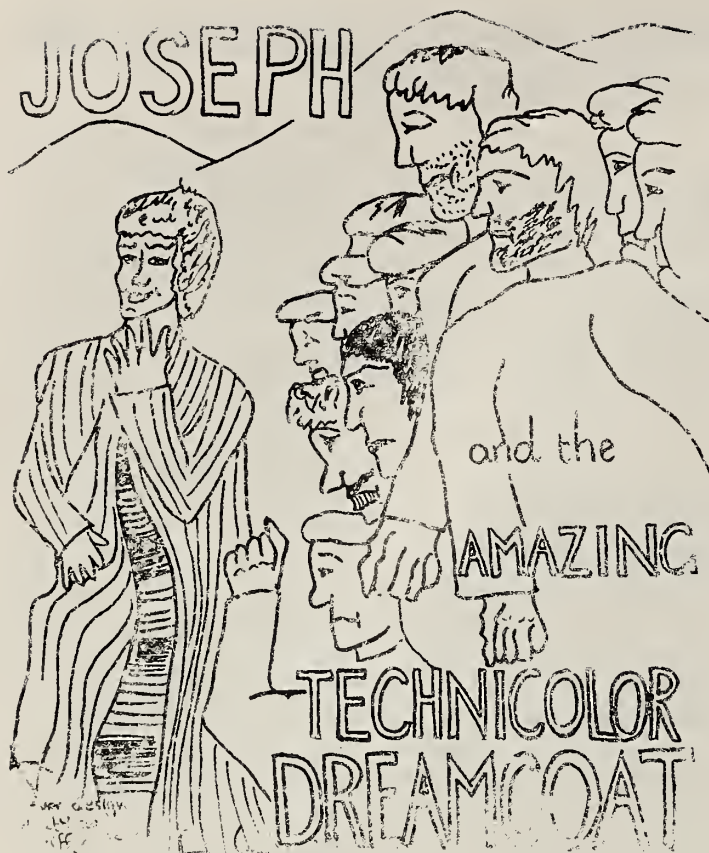 JOSEPH
and the
AMAZING
TECHNICOLOR
DREAMCOAT
design